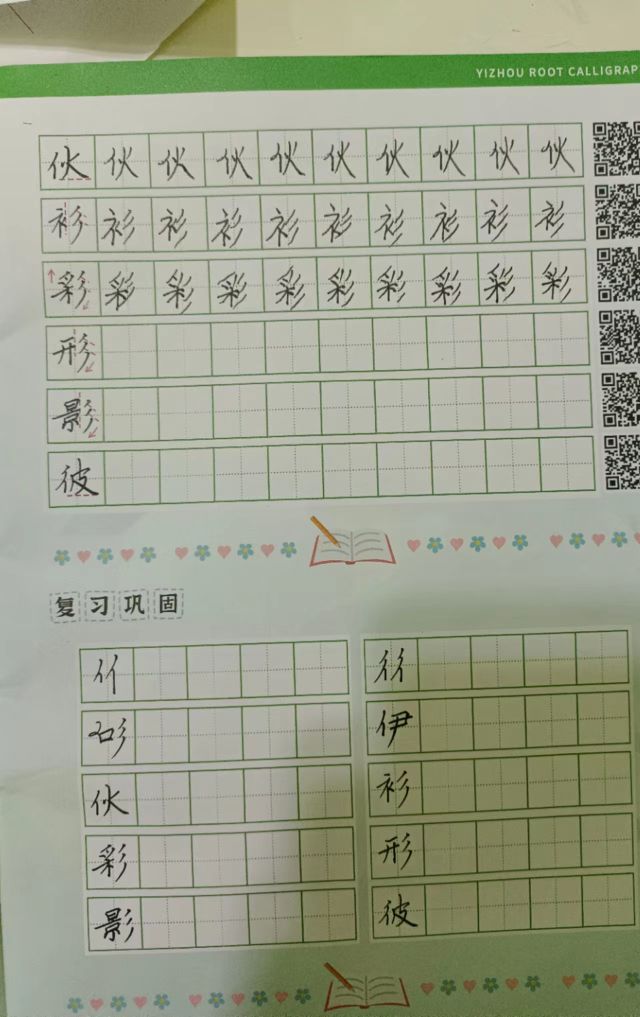 YIZHOU ROOT CALLIGRAP
伙 伙 伙 伙 伙 伙 伙 伙 伙 伙
衫 衫 衫 衫 衫 衫 衫 衫 衫 衫
彩 彩 彩 彩 彩 彩 彩 彩 彩 彩
形
影
彼
复习巩固
伊
伙 衫
彩 形
影 彼